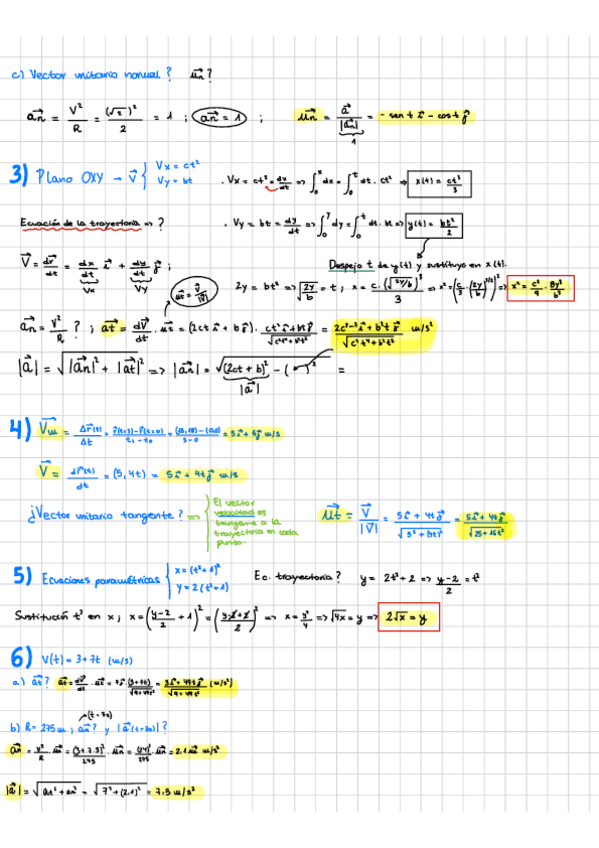 c) Vector unitario normal? u⃗n?
a⃗n = V²/R = (√2)²/2 = 1 ; a⃗n = 1 ; u⃗n = a⃗/|a⃗n| = - sen t i⃗ - cos t j⃗
1
3) Plano OXY → V⃗ { Vx = ct² Vy = bt
. Vx = ct² = dx/dt => ∫₀ˣ dx = ∫₀ᵗ dt. ct² => x(t) = ct³/3
Ecuación de la trayectoria => ?
. Vy = bt = dy/dt => ∫₀ʸ dy = ∫₀ᵗ dt. bt => y(t) = bt²/2
V⃗ = dr⃗/dt = dx/dt i⃗ + dy/dt j⃗ ;
Vx Vy
u⃗t = V⃗/|V⃗|
Despejo t de y(t) y sustituyo en x(t).
2y = bt² => √(2y/b) = t ; x = c.(√(2y/b))³/3 => x² = (c/3 · (2y/b)^(3/2))² => x² = c²/9 · 8y³/b³
a⃗n = V²/R ? ; a⃗t = dV⃗/dt · u⃗t = (2ct i⃗ + b j⃗) · (ct² i⃗ + bt j⃗)/√(c²t⁴ + b²t²) = (2c²t³ i⃗ + b²t j⃗)/√(c²t⁴ + b²t²) m/s²
|a⃗| = √(|a⃗n|² + |a⃗t|²) => |a⃗n| = √((2ct + b)² - ( )²) =
|a⃗|
4) V⃗m = Δr⃗(t)/Δt = (r⃗(t=3) - r⃗(t=0))/(t₁ - t₀) = ((15,18) - (0,0))/(3-0) = 5i⃗ + 6j⃗ m/s
V⃗ = dr⃗(t)/dt = (5, 4t) = 5i⃗ + 4tj⃗ m/s
¿Vector unitario tangente? => { El vector
velocidad es
tangente a la
trayectoria en cada
punto.
u⃗t = V⃗/|V⃗| = (5i⃗ + 4tj⃗)/√(5² + (4t)²) = (5i⃗ + 4tj⃗)/√(25 + 16t²)
5) Ecuaciones paramétricas { x = (t²+1)² y = 2(t²+1)
Ec. trayectoria? y = 2t² + 2 => (y-2)/2 = t²
Sustitución t² en x ; x = ((y-2)/2 + 1)² = ((y-2+2)/2)² => x = y²/4 => √4x = y => 2√x = y
6) V(t) = 3 + 7t (m/s)
a) a⃗t?
(t=3s)
b) R = 275 m ; a⃗n? y |a⃗(t=3s)|?
a⃗n = V²/R · u⃗n = (3+7.3)²/275 · u⃗n = (24)²/275 · u⃗n = 2.1 u⃗n m/s²
|a⃗| = √(at² + an²) = √(7² + (2.1)²) = 7,3 m/s²